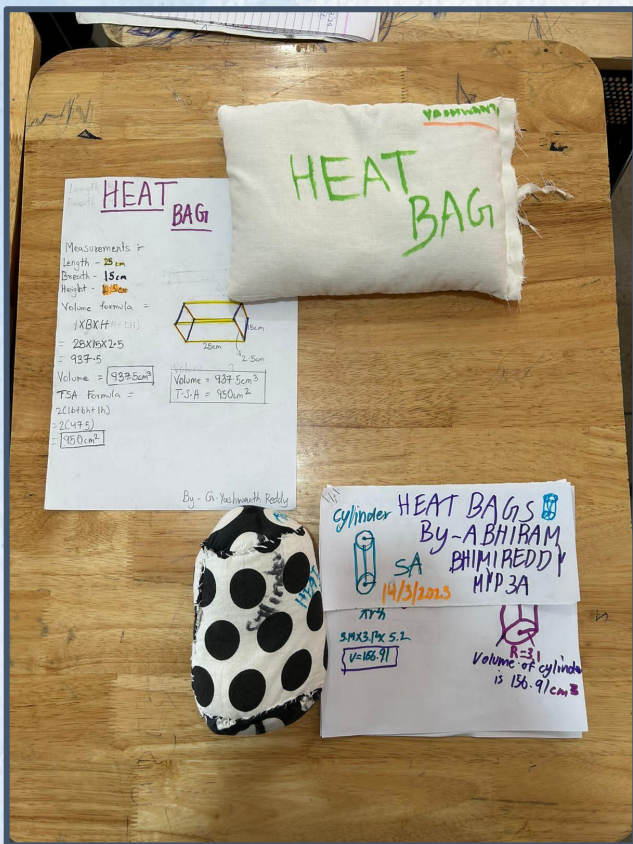 YASHWANT
HEAT
BAG
HEAT
BAG
Measurements :-
Length - 25cm
Breath - 15cm
Height - 2.5cm
Volume formula =
lXBXH
= 25X15X2.5
= 937.5
Volume = 937.5cm³
TSA Formula =
2(lb+bh+lh)
=2(475)
= 950cm²
15cm
25cm
2.5cm
Volume = 937.5cm³
T.S.A = 950cm²
By - G. Yashwanth Reddy
Cylinder
HEAT BAGS
By-ABHIRAM
BHIMIREDDY
MYP3A
SA
14/3/2023
πr²h
V=156.91
R=3.1
Volume of cylinder
is 156.91cm³